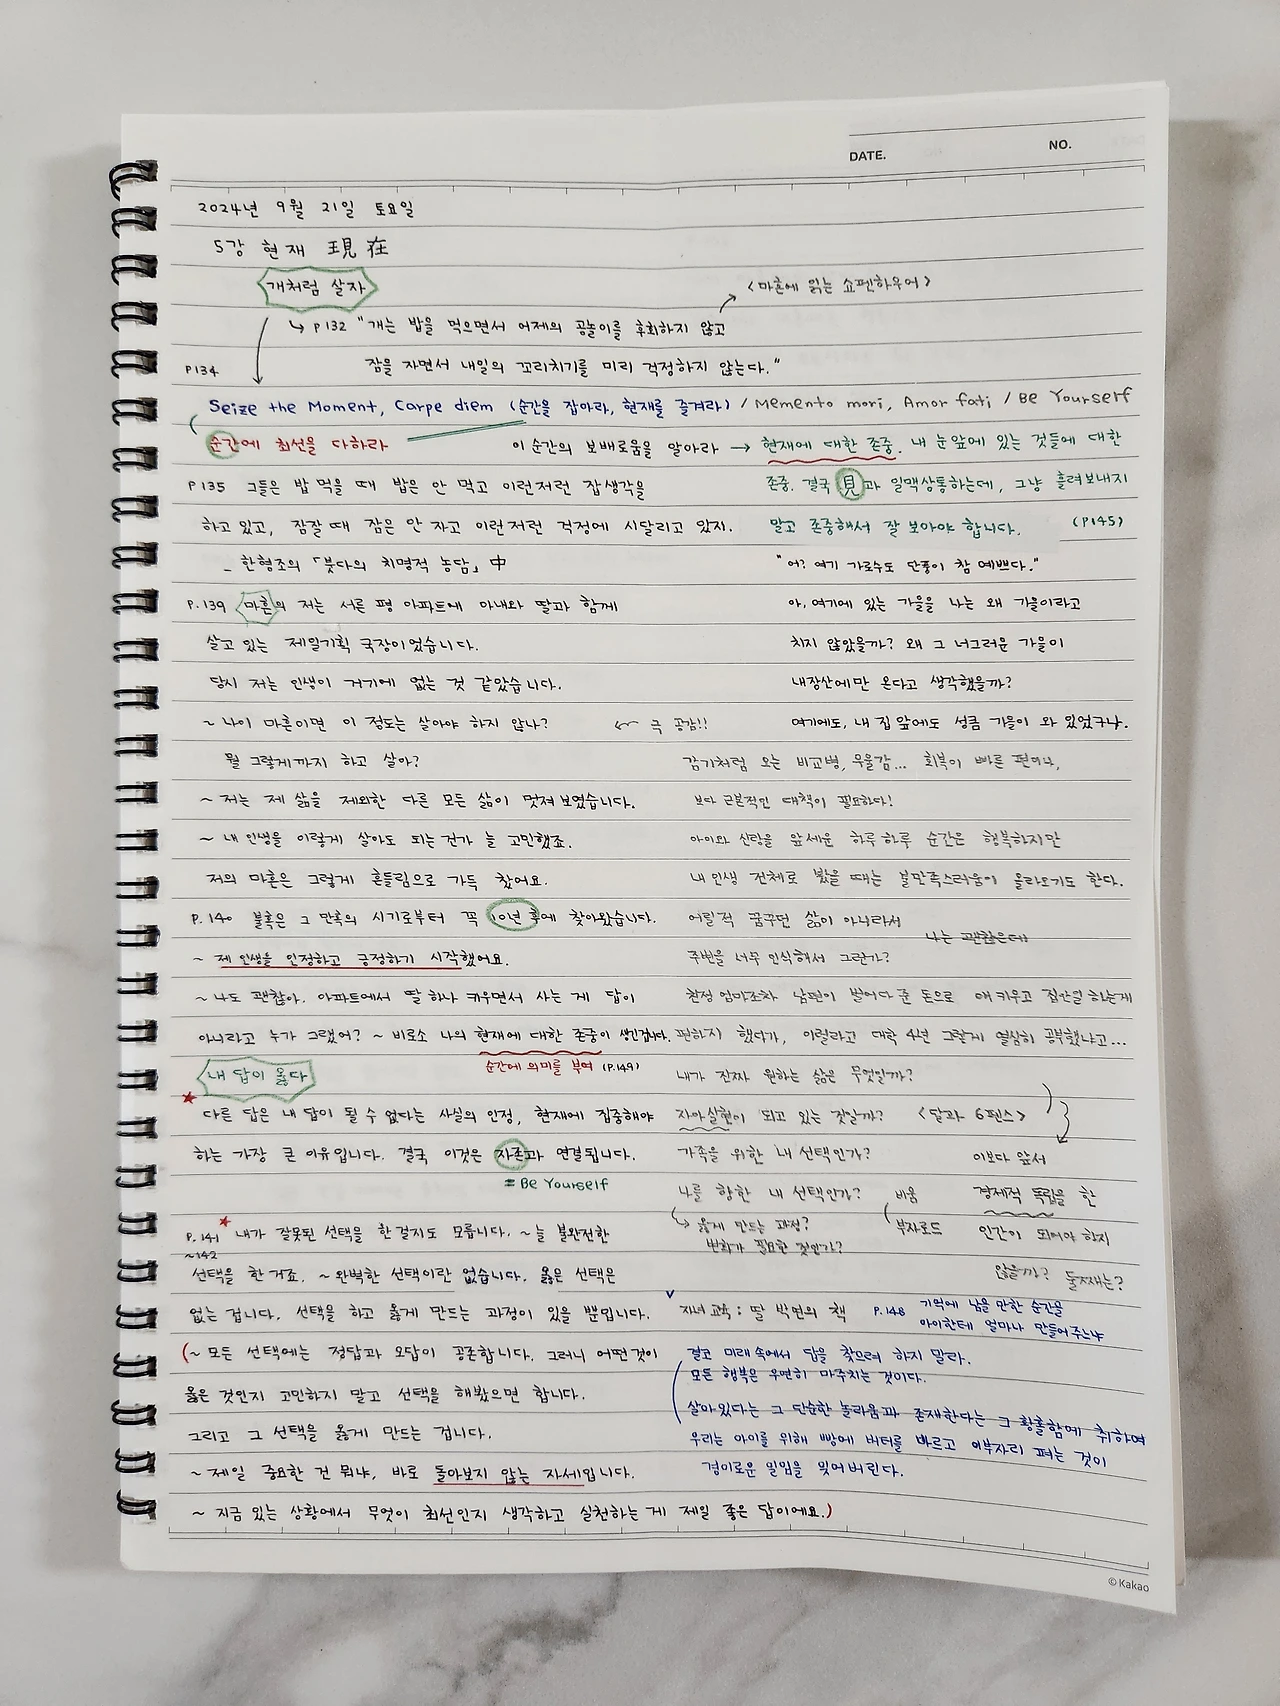 DATE.
NO.
2024년 9월 21일 토요일
5강 현재 現在
개처럼 살자
<마흔에 읽는 쇼펜하우어>
P132 "개는 밥을 먹으면서 어제의 공놀이를 후회하지 않고
잠을 자면서 내일의 꼬리치기를 미리 걱정하지 않는다."
P134
Seize the Moment, Carpe diem (순간을 잡아라, 현재를 즐겨라) / Memento mori, Amor fati / Be Yourself
순간에 최선을 다하라
이 순간의 보배로움을 알아라 → 현재에 대한 존중. 내 눈앞에 있는 것들에 대한
존중. 결국 見과 일맥상통하는데, 그냥 흘려보내지
말고 존중해서 잘 보아야 합니다. (P145)
P135 그들은 밥 먹을 때 밥은 안 먹고 이런저런 잡생각을
하고 있고, 잠잘 때 잠은 안 자고 이런저런 걱정에 시달리고 있지.
_ 한형조의 「붓다의 치명적 농담」中
P.139 마흔의 저는 서른 평 아파트에 아내와 딸과 함께
살고 있는 제일기획 국장이었습니다.
당시 저는 인생이 거기에 없는 것 같았습니다.
~ 나이 마흔이면 이 정도는 살아야 하지 않나?
← 극 공감!!
뭘 그렇게까지 하고 살아?
~ 저는 제 삶을 제외한 다른 모든 삶이 멋져 보였습니다.
~ 내 인생을 이렇게 살아도 되는건가 늘 고민했죠.
저의 마흔은 그렇게 흔들림으로 가득 찼어요.
P.140 불혹은 그 만혹의 시기로부터 꼭 10년 후에 찾아왔습니다.
~ 제 인생을 인정하고 긍정하기 시작했어요.
~ 나도 괜찮아. 아파트에서 딸 하나 키우면서 사는 게 답이
아니라고 누가 그랬어? ~ 비로소 나의 현재에 대한 존중이 생긴겁니다.
순간에 의미를 부여 (P.149)
내 답이 옳다
★ 다른 답은 내 답이 될 수 없다는 사실의 인정, 현재에 집중해야
하는 가장 큰 이유입니다. 결국 이것은 자존과 연결됩니다.
= Be Yourself
P.141 ~142 ★ 내가 잘못된 선택을 한 걸지도 모릅니다. ~ 늘 불완전한
선택을 한 거죠. ~ 완벽한 선택이란 없습니다. 옳은 선택은
없는 겁니다. 선택을 하고 옳게 만드는 과정이 있을 뿐입니다.
(~ 모든 선택에는 정답과 오답이 공존합니다. 그러니 어떤것이
옳은 것인지 고민하지 말고 선택을 해봤으면 합니다.
그리고 그 선택을 옳게 만드는 겁니다.
~ 제일 중요한 건 뭐냐, 바로 돌아보지 않는 자세입니다.
~ 지금 있는 상황에서 무엇이 최선인지 생각하고 실천하는 게 제일 좋은 답이에요.)
"어? 여기 가로수도 단풍이 참 예쁘다."
아, 여기에 있는 가을을 나는 왜 가을이라고
치지 않았을까? 왜 그 너그러운 가을이
내장산에만 온다고 생각했을까?
여기에도, 내 집 앞에도 성큼 가을이 와 있었구나.
감기처럼 오는 비교병, 우울감... 회복이 빠른 편이나,
보다 근본적인 대책이 필요하다!
아이와 신랑을 앞세운 하루하루 순간은 행복하지만
내 인생 전체로 봤을 때는 불만족스러움이 올라오기도 한다.
어릴적 꿈꾸던 삶이 아니라서
나는 괜찮은데
주변을 너무 인식해서 그런가?
친정엄마조차 남편이 벌어다 준 돈으로 애 키우고 집안일 하는게
편하지 했다가, 이럴라고 대학 4년 그렇게 열심히 공부했냐고...
내가 진짜 원하는 삶은 무엇일까?
자아실현이 되고 있는 것일까? <달과 6펜스>
가족을 위한 내 선택인가?
이보다 앞서
나를 향한 내 선택인가?
비움
경제적 독립을 한
옳게 만드는 과정?
부자로드
인간이 되어야 하지
변화가 필요한 것인가?
않을까? 둘째는?
자녀교육 : 딸 박연의 책
P.148 기억에 남을 만한 순간을
아이한테 얼마나 만들어주느냐
결코 미래 속에서 답을 찾으려 하지 말라.
모든 행복은 우연히 마주치는 것이다.
살아있다는 그 단순한 놀라움과 존재한다는 그 황홀함에 취하여
우리는 아이를 위해 빵에 버터를 바르고 이부자리 펴는 것이
경이로운 일임을 잊어버린다.
© Kakao